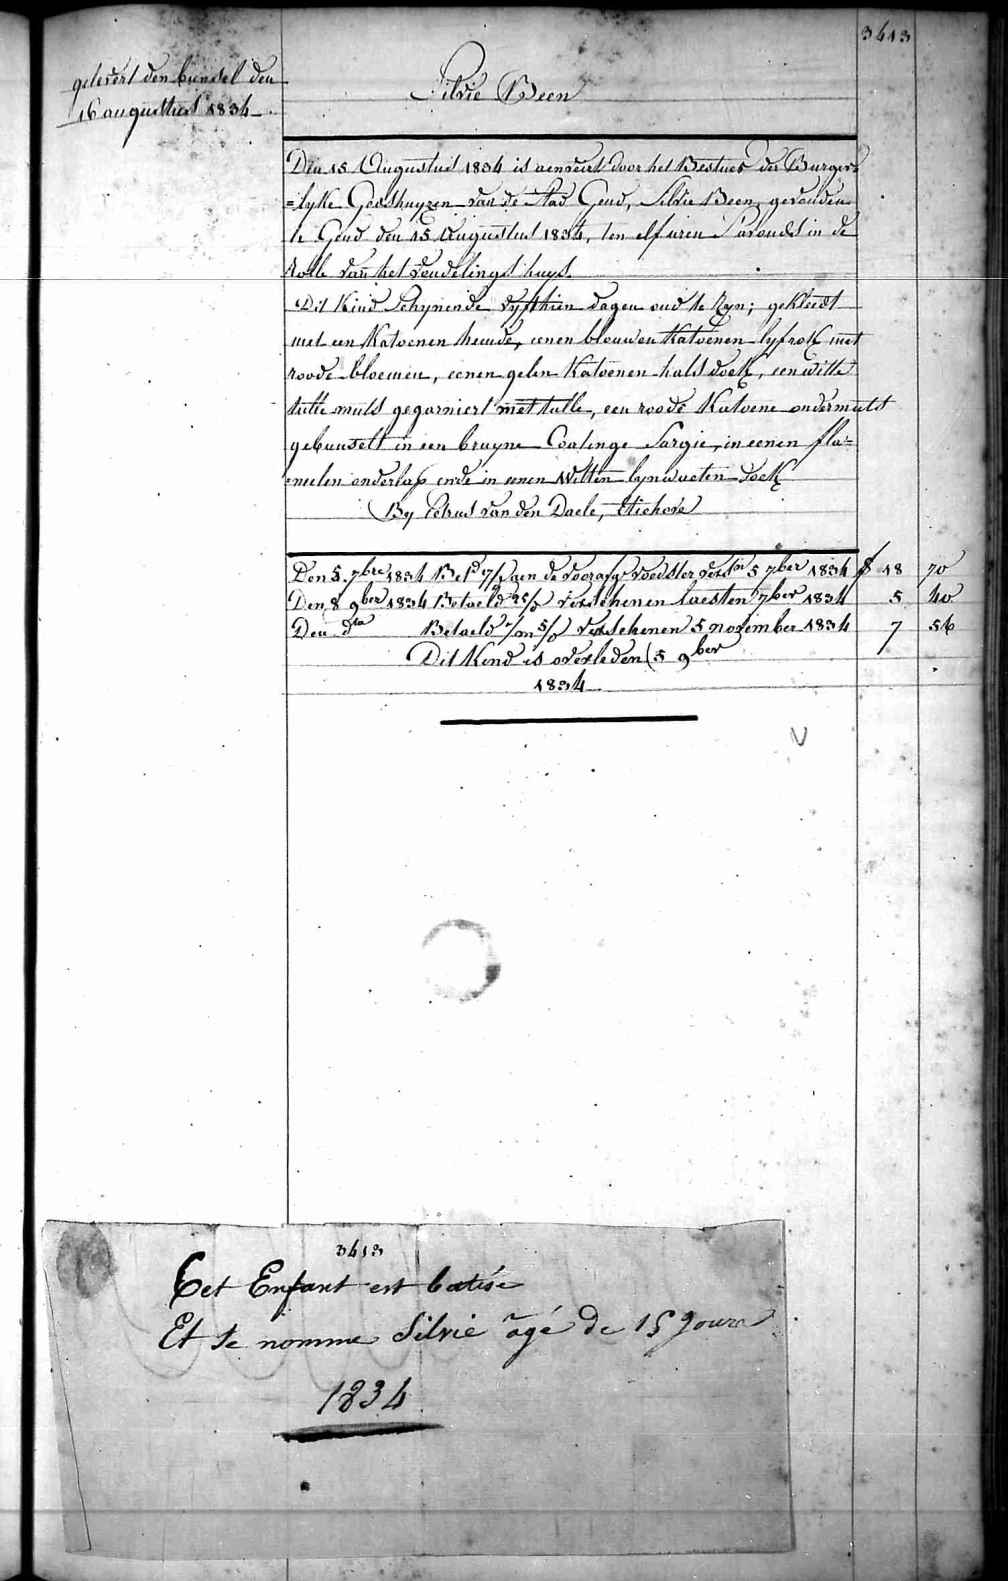 3413
gelevert den bundel den
16 augustus 1834
Silvie Been
Den 15 Augustus 1834 is aenveert door het Bestuer der Burger=
=lyke Godshuyzen van de Stad Gend, Silvie Been, gevonden
te Gend den 15 Augustus 1834, ten elf uren S'avonds in de
rolle van het vondelings huys.
Dit Kind Schynende vyfthien dagen oud te Zyn; gekleedt
met een Katoenen hemde, eenen blauwen Katoenen lyfrok met
roode bloemen, eenen gelen Katoenen halsdoek, een witte
tulle muts gegarniert met tulle, een roode Katoene ondermuts
gebundelt in een bruyne Sargie, in eenen fla=
=nellen onderlap ende in eenen Witten lynwaeten doek
By Petrus van den Daele,
Den 5 7bre 1834 aen de voedster 5 7ber 1834 f 18 70
Den 8 9ber 1834 Betaeld verschenen laesten 7ber 1834 5 40
Den dto Betaeld verschenen 5 november 1834 7 56
Dit Kind is overleden 5 9ber
1834
V
3413
Cet Enfant est batise
Et se nomme Silvie âgé de 15 Jours
1834